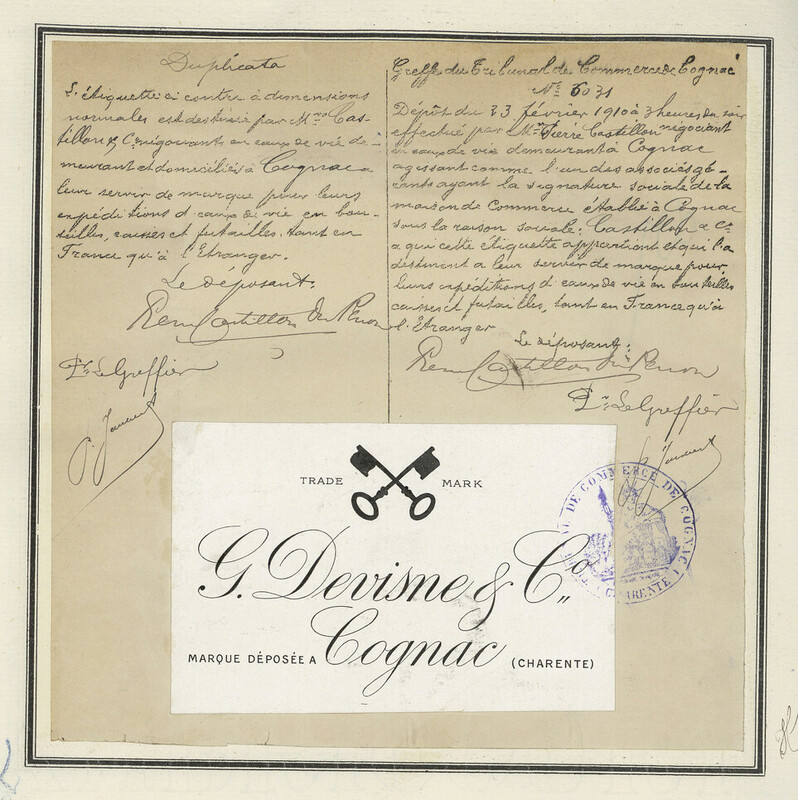 Duplicata
L'étiquette ci contre à dimensions
normales est destinée par Mrs Cas-
tillon & Co négociants en eaux de vie de-
meurant et domiciliés à Cognac a
leur servir de marque pour leurs
expéditions d'eaux de vie en bou-
teilles, caisses et futailles, tant en
France qu'à l'Etranger.
Le déposant.
Castillon du Perron
Le Greffier
Greffe du Tribunal de Commerce de Cognac
No 6031
Dépôt du 23 février 1910 à 3 heures du soir
effectué par Mr Pierre Castillon négociant
en eaux de vie demeurant à Cognac
agissant comme l'un des associés gé-
rants ayant la signature sociale de la
maison de Commerce établie à Cognac
sous la raison sociale: Castillon & Co
a qui cette étiquette appartient et qui l'a
destinent a leur servir de marque pour
leurs expéditions d'eaux de vie en bouteilles
caisses et futailles, tant en France qu'à
l'Etranger
Le déposant:
Castillon du Perron
Le Greffier
TRADE MARK
G. Devisne & Co
MARQUE DÉPOSÉE A Cognac (CHARENTE)
DE COMMERCE DE COGNAC